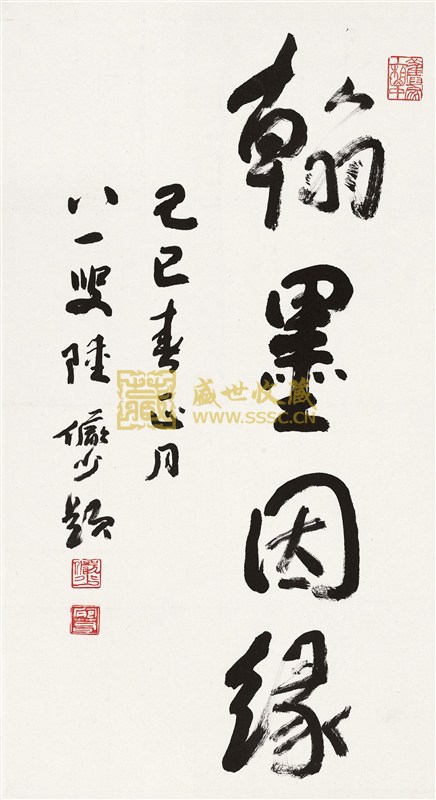 翰墨因缘
己巳春正月
八一叟陆俨少题
盛世收藏
WWW.SSSC.CN
藏